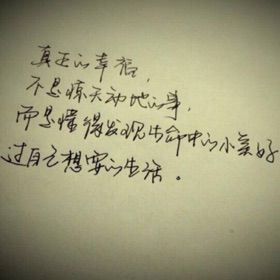 真正的幸福，
不是惊天动地的事，
而是懂得发现生命中的小美好
过自己想要的生活。